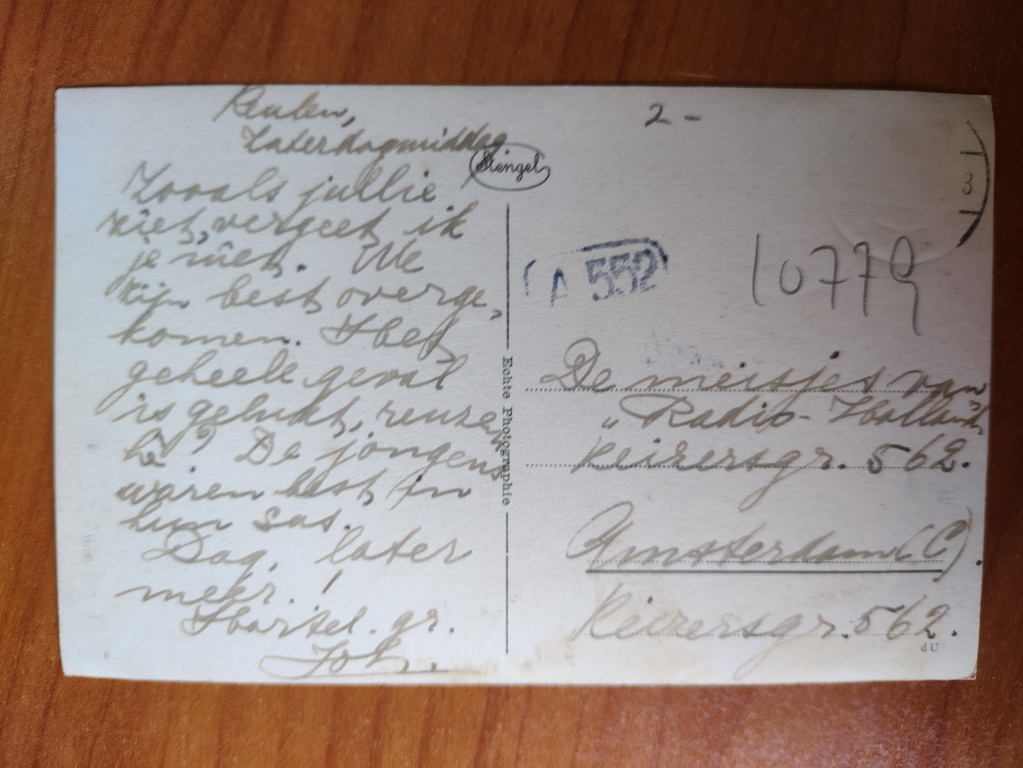 Keulen,
Zaterdagmiddag
Zooals jullie
ziet, vergeet ik
je niet. We
zijn best overge-
komen. Het
geheele geval
is gelukt, reuze
hè? De jongens
waren best in
hun sas.
Dag, later
meer!
Hartel. gr.
Joh.
Stengel
Echte Photographie
2-
3
A 552
10779
De meisjes van
"Radio-Holland"
Keizersgr. 562.
Amsterdam (C).
Keizersgr. 562.
dU